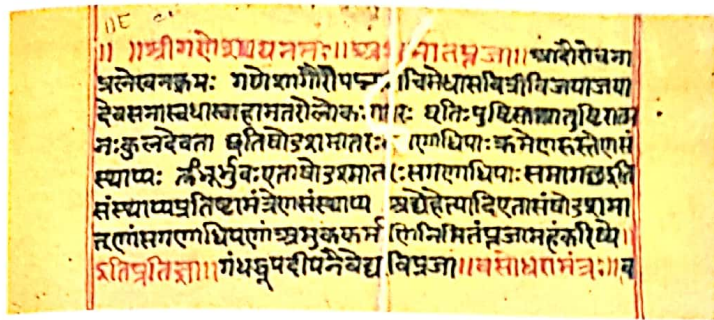 ॥ ॥ श्रीगणेशायनमः॥ अथ मातृपूजा॥ आदौरोचना
प्रलेखनक्रमः गणेशगौरीपद्मा चिमेधासवित्रीविजयाजया
देवसेनास्वधास्वाहामातरोलोकमातरः धृतिःपुष्टिस्तथातुष्टिरात्म
नःकुलदेवता इतिषोडशमातरः गणाधिपाः क्रमेणहस्तेणसं
स्थाप्यः ॐभूर्भुवःएताषोडशमातरःसगणाधिपाःसमागछइति
संस्थाप्यप्रतिष्टामंत्रेणसंस्थाप्य अद्येहेत्यादिएतासंषोडशमा
तृणांसगणाधिपणांअमुककर्म णिनिमितंपूजामहंकरिष्ये॥
इतिप्रतिज्ञा॥ गंधधूपदीपनैवेद्य विप्रजा॥वसोधारामंत्रः॥व